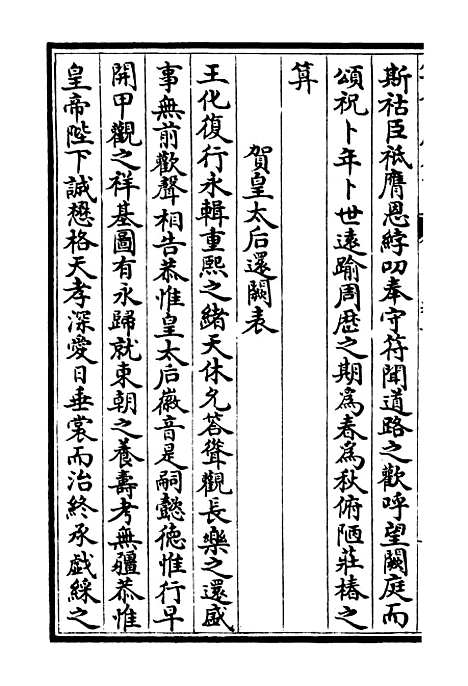 斯祜臣祗膺恩綍叨奉守符聞道路之歡呼望闕庭而
頌祝卜年卜世遠踰周歴之期為春為秋俯陋莊椿之
算
賀皇太后還闕表
王化復行永輯重熙之緒天休允答聳觀長樂之還盛
事無前歡聲相告恭惟皇太后徽音是嗣懿德惟行早
開甲觀之祥基圖有永歸就東朝之養壽考無疆恭惟
皇帝陛下誠懋格天孝深愛日垂裳而治終承戲綵之